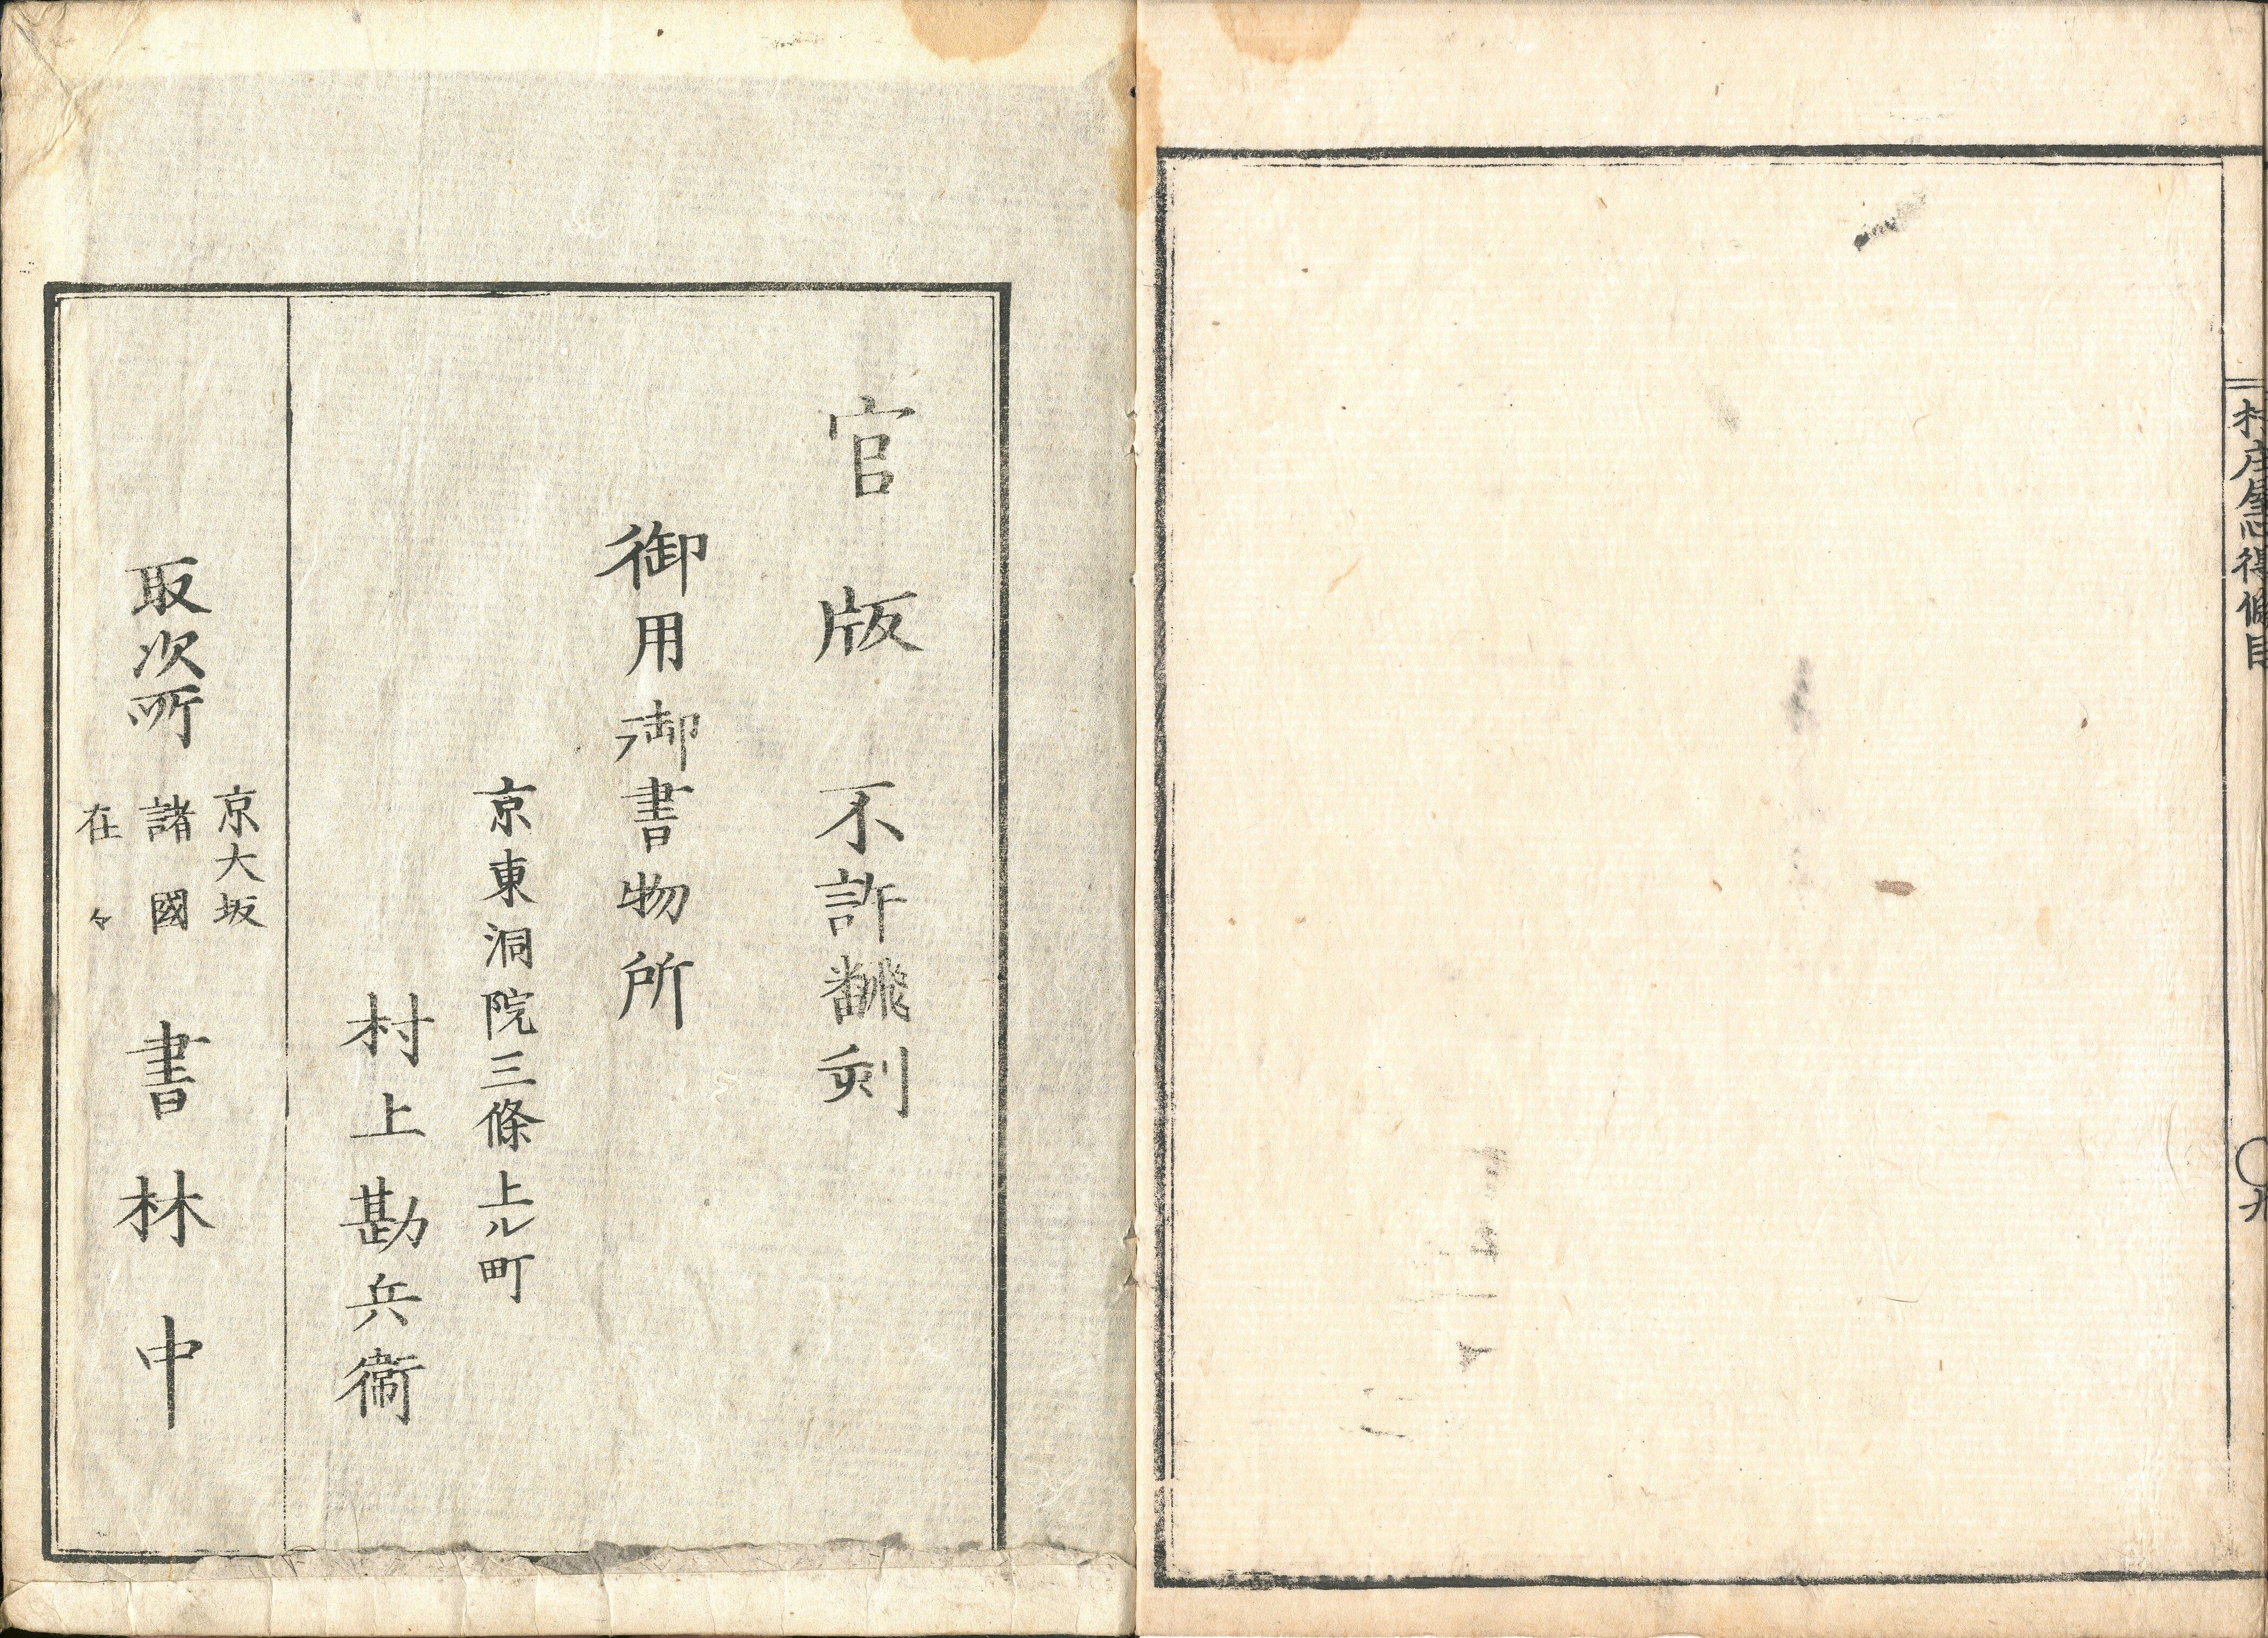 村庄屋心得條目
〇九
官版 不許飜刻
御用御書物所
京東洞院三條上ル町
村上勘兵衞
取次所
京大坂
諸國
在々
書林中